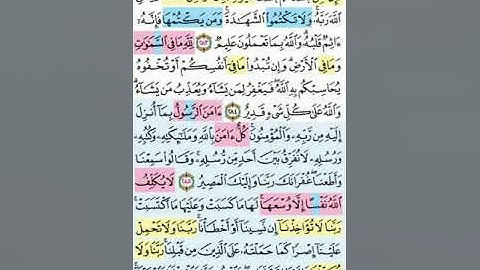 ٱللَّهَ رَبَّهُۥ ۗ وَلَا تَكْتُمُوا۟ ٱلشَّهَٰدَةَ ۚ وَمَن يَكْتُمْهَا فَإِنَّهُۥٓ
ءَاثِمٌ قَلْبُهُۥ ۗ وَٱللَّهُ بِمَا تَعْمَلُونَ عَلِيمٌ ٢٨٣ لِّلَّهِ مَا فِى ٱلسَّمَٰوَٰتِ
وَمَا فِى ٱلْأَرْضِ ۗ وَإِن تُبْدُوا۟ مَا فِىٓ أَنفُسِكُمْ أَوْ تُخْفُوهُ
يُحَاسِبْكُم بِهِ ٱللَّهُ ۖ فَيَغْفِرُ لِمَن يَشَآءُ وَيُعَذِّبُ مَن يَشَآءُ ۗ
وَٱللَّهُ عَلَىٰ كُلِّ شَىْءٍ قَدِيرٌ ٢٨٤ ءَامَنَ ٱلرَّسُولُ بِمَآ أُنزِلَ
إِلَيْهِ مِن رَّبِّهِۦ وَٱلْمُؤْمِنُونَ ۚ كُلٌّ ءَامَنَ بِٱللَّهِ وَمَلَٰٓئِكَتِهِۦ وَكُتُبِهِۦ
وَرُسُلِهِۦ لَا نُفَرِّقُ بَيْنَ أَحَدٍ مِّن رُّسُلِهِۦ ۚ وَقَالُوا۟ سَمِعْنَا
وَأَطَعْنَا ۖ غُفْرَانَكَ رَبَّنَا وَإِلَيْكَ ٱلْمَصِيرُ ٢٨٥ لَا يُكَلِّفُ
ٱللَّهُ نَفْسًا إِلَّا وُسْعَهَا ۚ لَهَا مَا كَسَبَتْ وَعَلَيْهَا مَا ٱكْتَسَبَتْ ۗ
رَبَّنَا لَا تُؤَاخِذْنَآ إِن نَّسِينَآ أَوْ أَخْطَأْنَا ۚ رَبَّنَا وَلَا تَحْمِلْ
عَلَيْنَآ إِصْرًا كَمَا حَمَلْتَهُۥ عَلَى ٱلَّذِينَ مِن قَبْلِنَا ۚ رَبَّنَا وَلَا